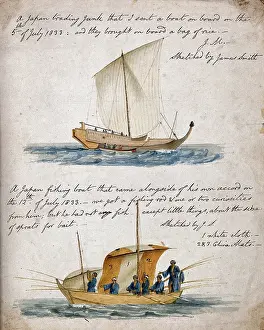 A Japan trading Junk that I sent a boat on board on the
5th of July 1833: and they brought on board a bag of rice —
J. S.
Sketched by James Smith
A Japan fishing boat that came alongside of his own accord on
the 12th of July 1833 — we got a fishing rod & one or two curiosities
from him, but he had not any fish except little things, about the size
of sprats for bait.
Sketched by J. S.
1 white cloth
2 & 3 China Mats